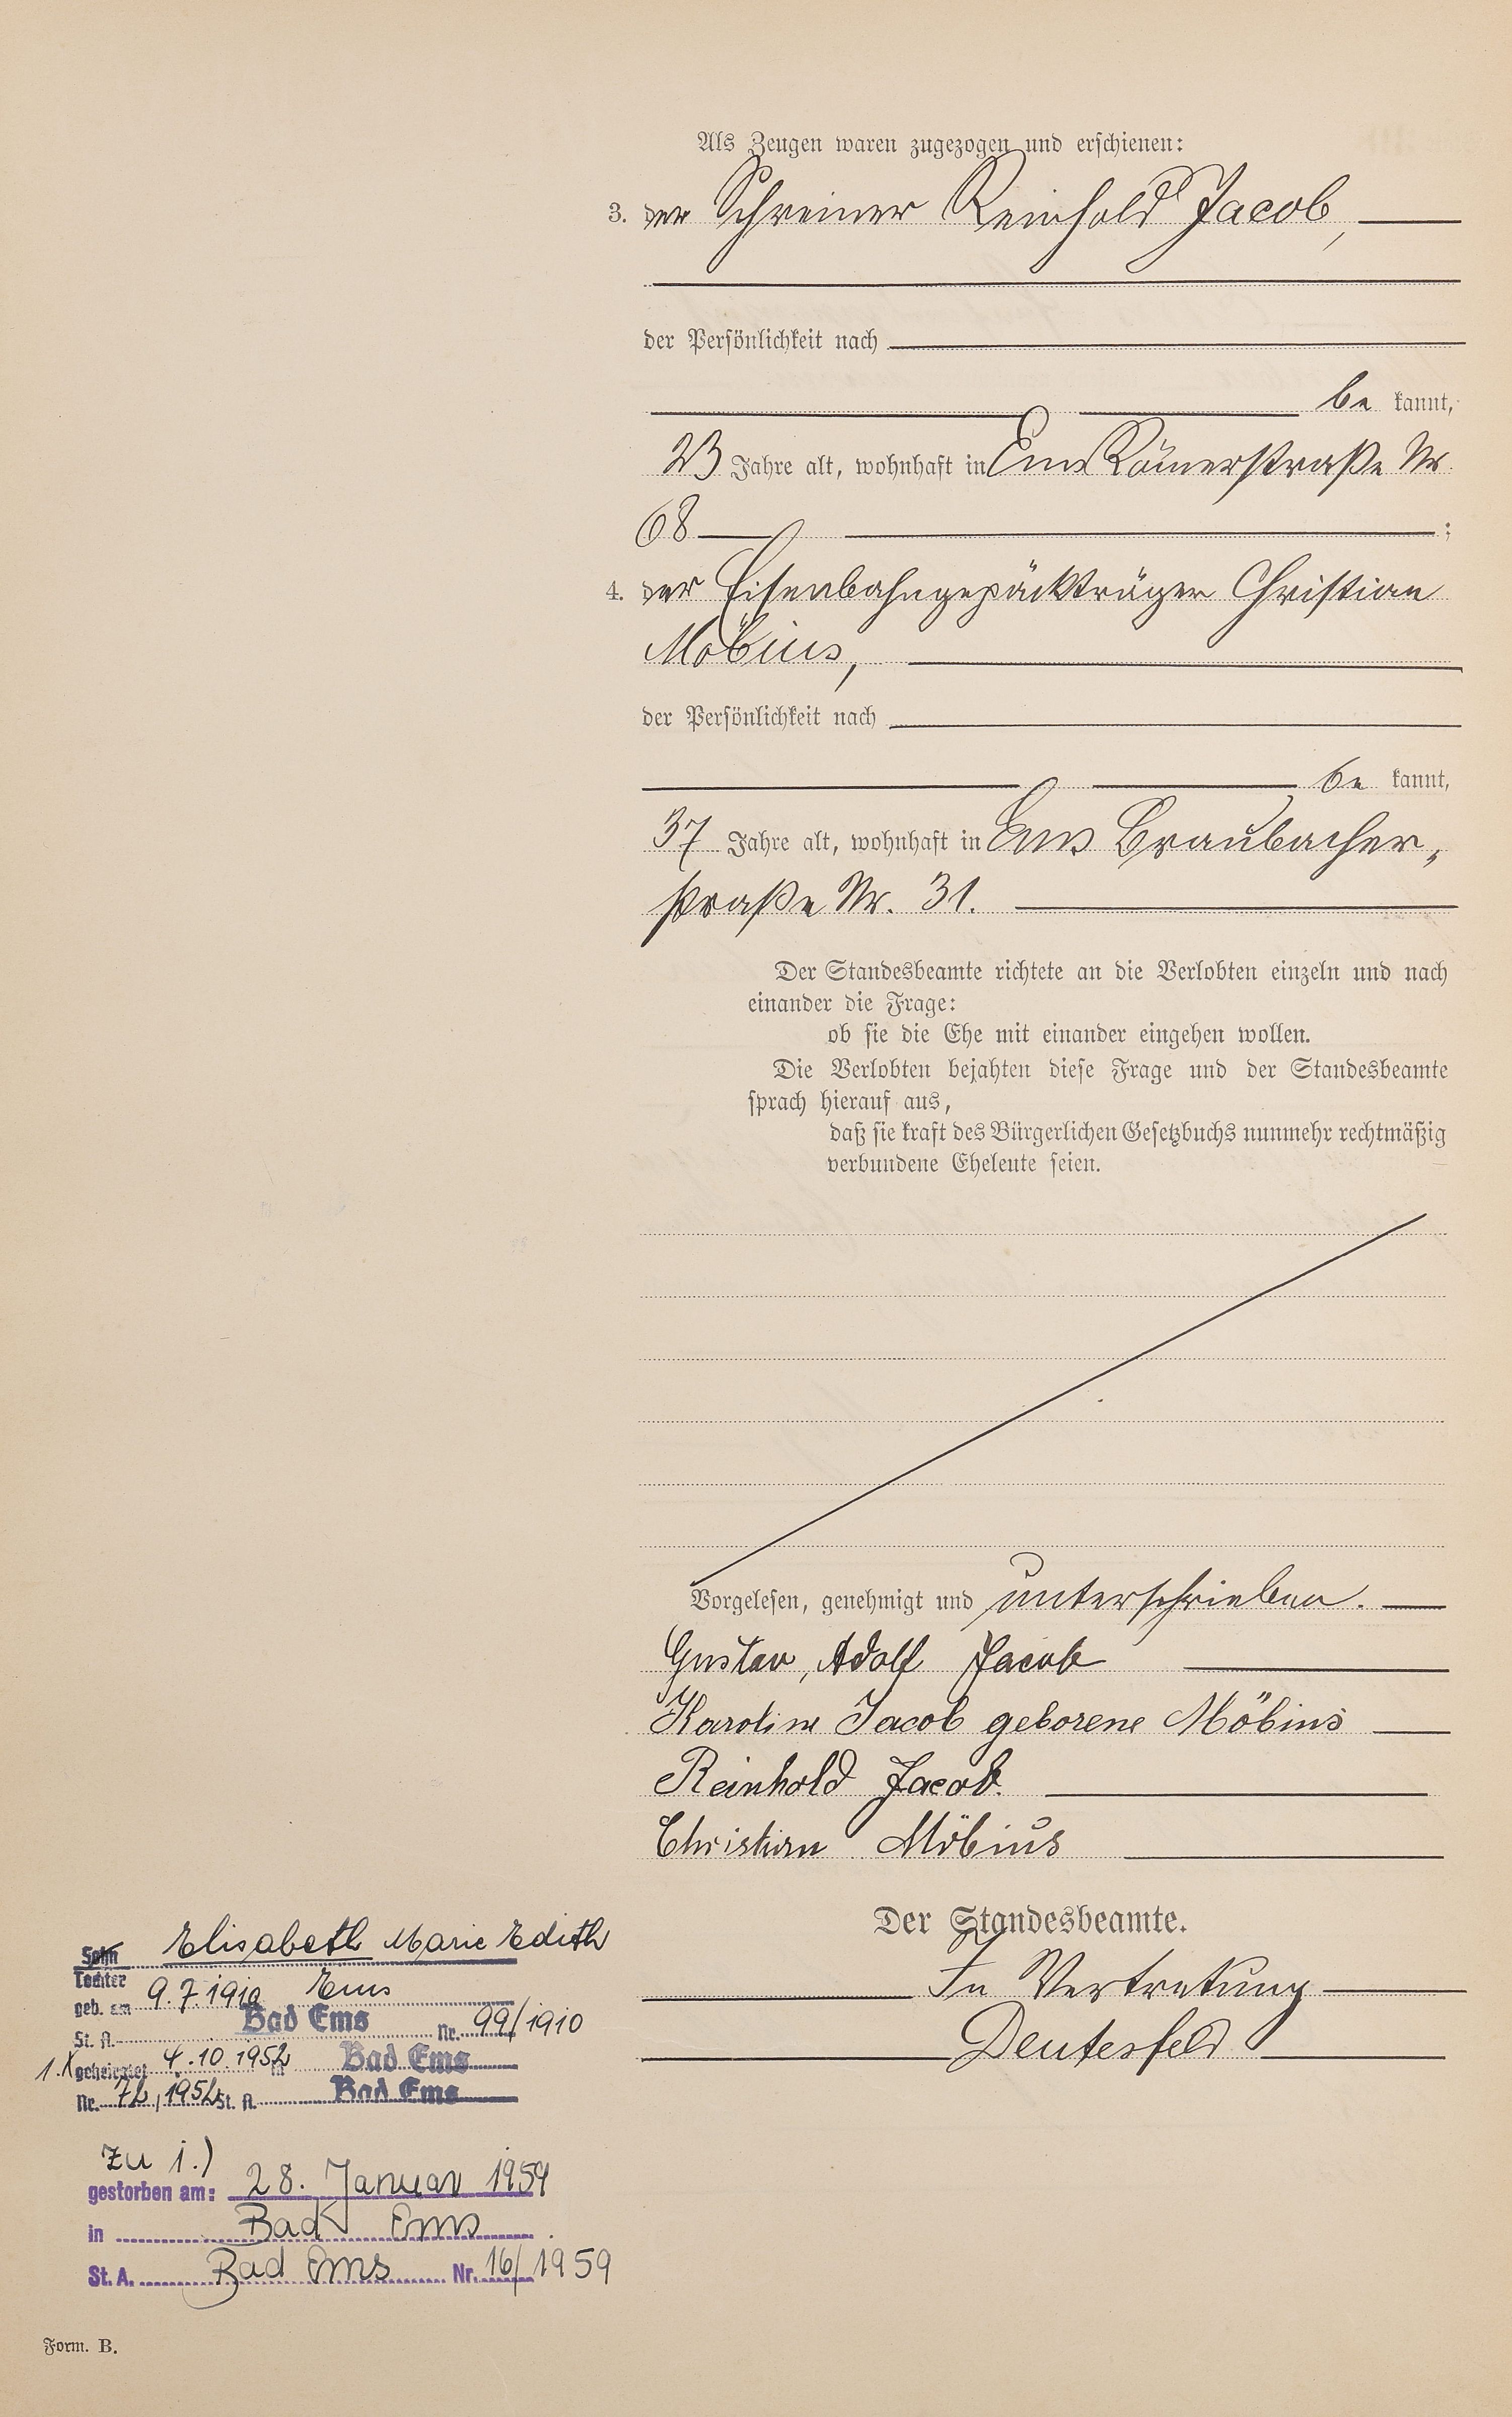 Als Zeugen waren zugezogen und erschienen:
3. der Schreiner Reinhold Jacob,
der Persönlichkeit nach
be kannt,
23 Jahre alt, wohnhaft in Ems Römerstraße Nr.
68 ;
4. der Eisenbahngepäckträger Christian
Möbius,
der Persönlichkeit nach
be kannt,
37 Jahre alt, wohnhaft in Ems Braubacher-
straße Nr. 31.
Der Standesbeamte richtete an die Verlobten einzeln und nach
einander die Frage:
ob sie die Ehe mit einander eingehen wollen.
Die Verlobten bejahten diese Frage und der Standesbeamte
sprach hierauf aus,
daß sie kraft des Bürgerlichen Gesetzbuchs nunmehr rechtmäßig
verbundene Eheleute seien.
Vorgelesen, genehmigt und unterschrieben.
Gustav, Adolf Jacob
Karoline Jacob geborene Möbius
Reinhold Jacob.
Christian Möbius
Der Standesbeamte.
In Vertretung
Deutesfeld
Sohn Elisabeth Marie Edith
Tochter
geb. am 9.7.1910 Ems
St. A. Bad Ems Nr. 99/1910
1.X geheiratet 4.10.1952 in Bad Ems
Nr. 72/1952 St. A. Bad Ems
zu 1.)
gestorben am: 28. Januar 1959
in Bad Ems.
St. A. Bad Ems Nr. 16/1959
Form. B.